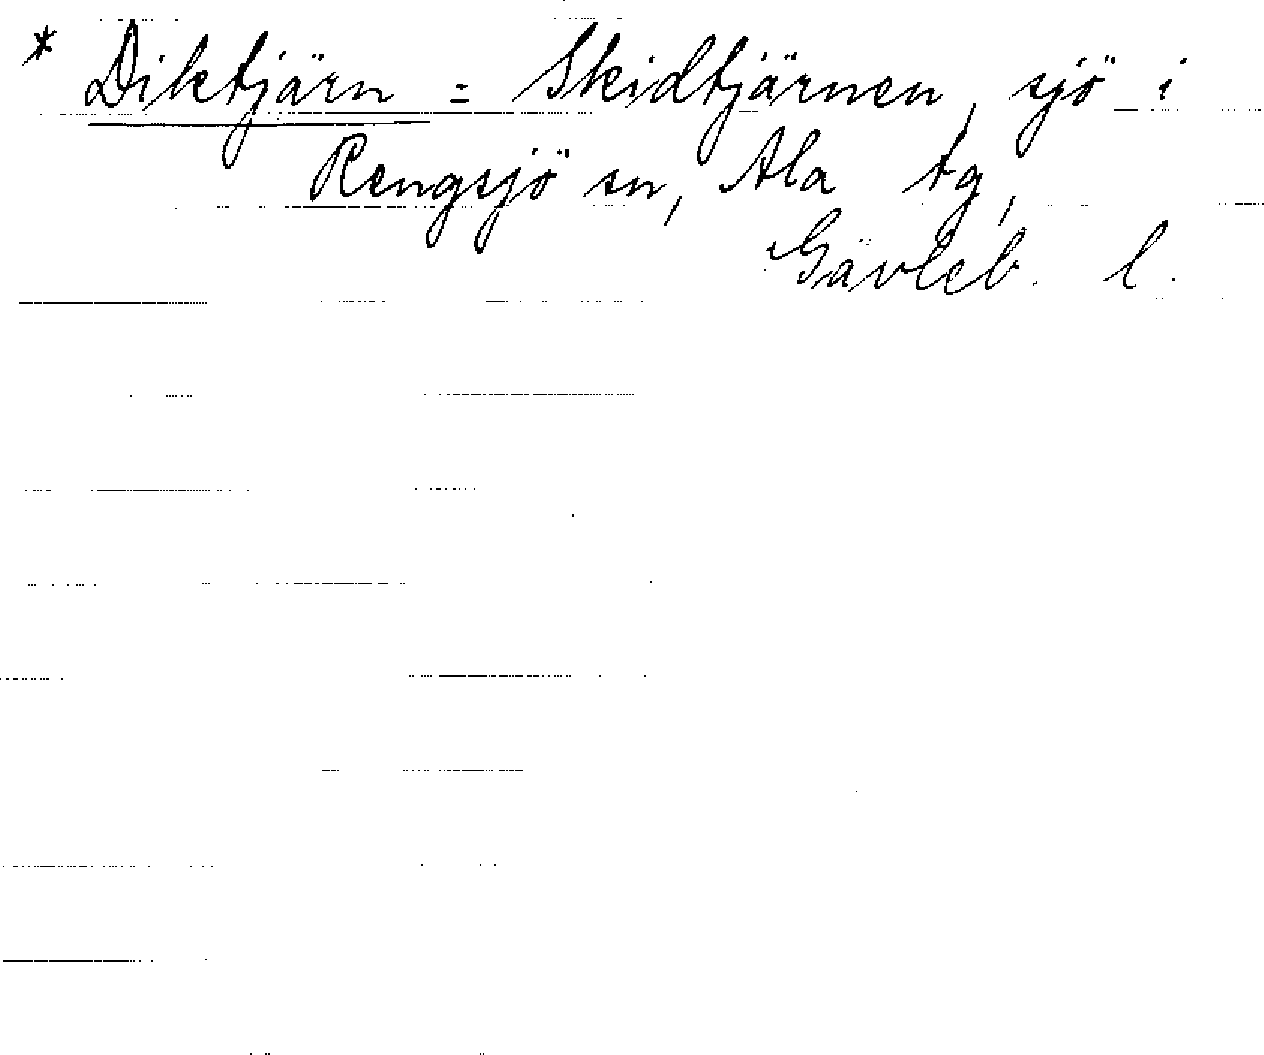 * Diktjärn = Skidtjärnen, sjö i
Rengsjö sn, Ala tg,
Gävleb. l.